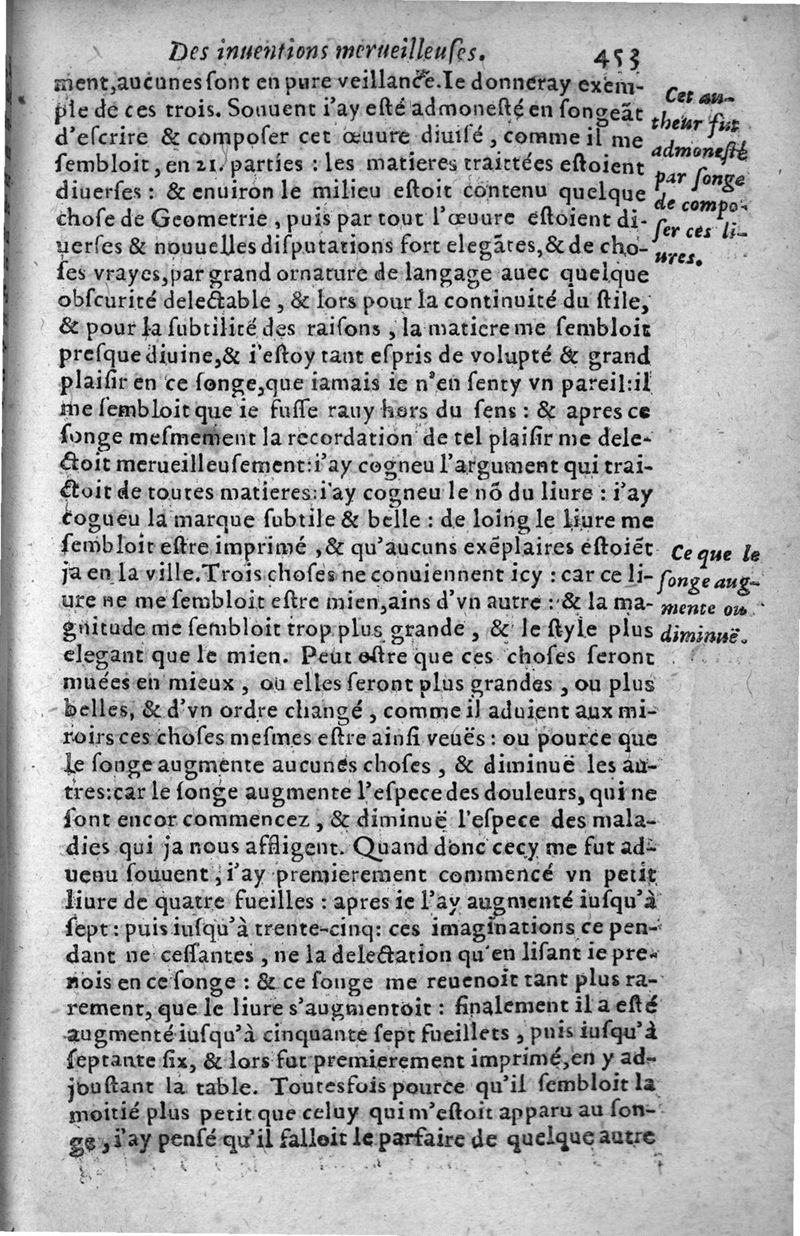 Des inuentions merueilleuſes. 453
ment,aucunes ſont en pure veillance.Ie donneray exem-
ple de ces trois. Souuent i'ay eſté admoneſté en ſongeãt
d'eſcrire & compoſer cet œuure diuiſé , comme il me
ſembloit, en 21. parties : les matieres traittées eſtoient
diuerſes : & enuiron le milieu eſtoit contenu quelque
choſe de Geometrie , puis par tout l'œuure eſtoient di-
uerſes & nouuelles diſputations fort elegãtes,& de cho-
ſes vrayes,par grand ornature de langage auec quelque
obſcurité delectable , & lors pour la continuité du ſtile,
& pour la ſubtilité des raiſons , la matiere me ſembloit
preſque diuine,& i'eſtoy tant eſpris de volupté & grand
plaiſir en ce ſonge,que iamais ie n'en ſenty vn pareil:il
me ſembloit que ie fuſſe rauy hors du ſens : & apres ce
ſonge meſmement la recordation de tel plaiſir me dele-
ctoit merueilleuſement:i'ay cogneu l'argument qui trai-
ctoit de toutes matieres:i'ay cogneu le nõ du liure : i'ay
cogueu la marque ſubtile & belle : de loing le liure me
ſembloit eſtre imprimé ,& qu'aucuns exẽplaires eſtoiẽt
ja en la ville.Trois choſes ne conuiennent icy : car ce li-
ure ne me ſembloit eſtre mien,ains d'vn autre : & la ma-
gnitude me ſembloit trop plus grande , & le ſtyle plus
elegant que le mien. Peut eſtre que ces choſes ſeront
muées en mieux , ou elles ſeront plus grandes , ou plus
belles, & d'vn ordre changé , comme il aduient aux mi-
roirs ces choſes meſmes eſtre ainſi veuës : ou pource que
le ſonge augmente aucunes choſes , & diminuë les au-
tres:car le ſonge augmente l'eſpece des douleurs, qui ne
ſont encor commencez , & diminuë l'eſpece des mala-
dies qui ja nous affligent. Quand donc cecy me fut ad-
uenu ſouuent , i'ay premierement commencé vn petit
liure de quatre fueilles : apres ie l'ay augmenté iuſqu'à
ſept : puis iuſqu'à trente-cinq: ces imaginations ce pen-
dant ne ceſſantes , ne la delectation qu'en liſant ie pre-
nois en ce ſonge : & ce ſonge me reuenoit tant plus ra-
rement, que le liure s'augmentoit : finalement il a eſté
augmenté iuſqu'à cinquante ſept fueillets , puis iuſqu'à
ſeptante ſix, & lors fut premierement imprimé,en y ad-
jouſtant la table. Toutesfois pource qu'il ſembloit la
moitié plus petit que celuy qui m'eſtoit apparu au ſon-
ge , i'ay penſé qu'il falloit le parfaire de quelque autre
Cet au-
theur fut
admoneſté
par ſonge
de compo-
ſer ces li-
ures.
Ce que le
ſonge aug-
mente ou
diminuë.